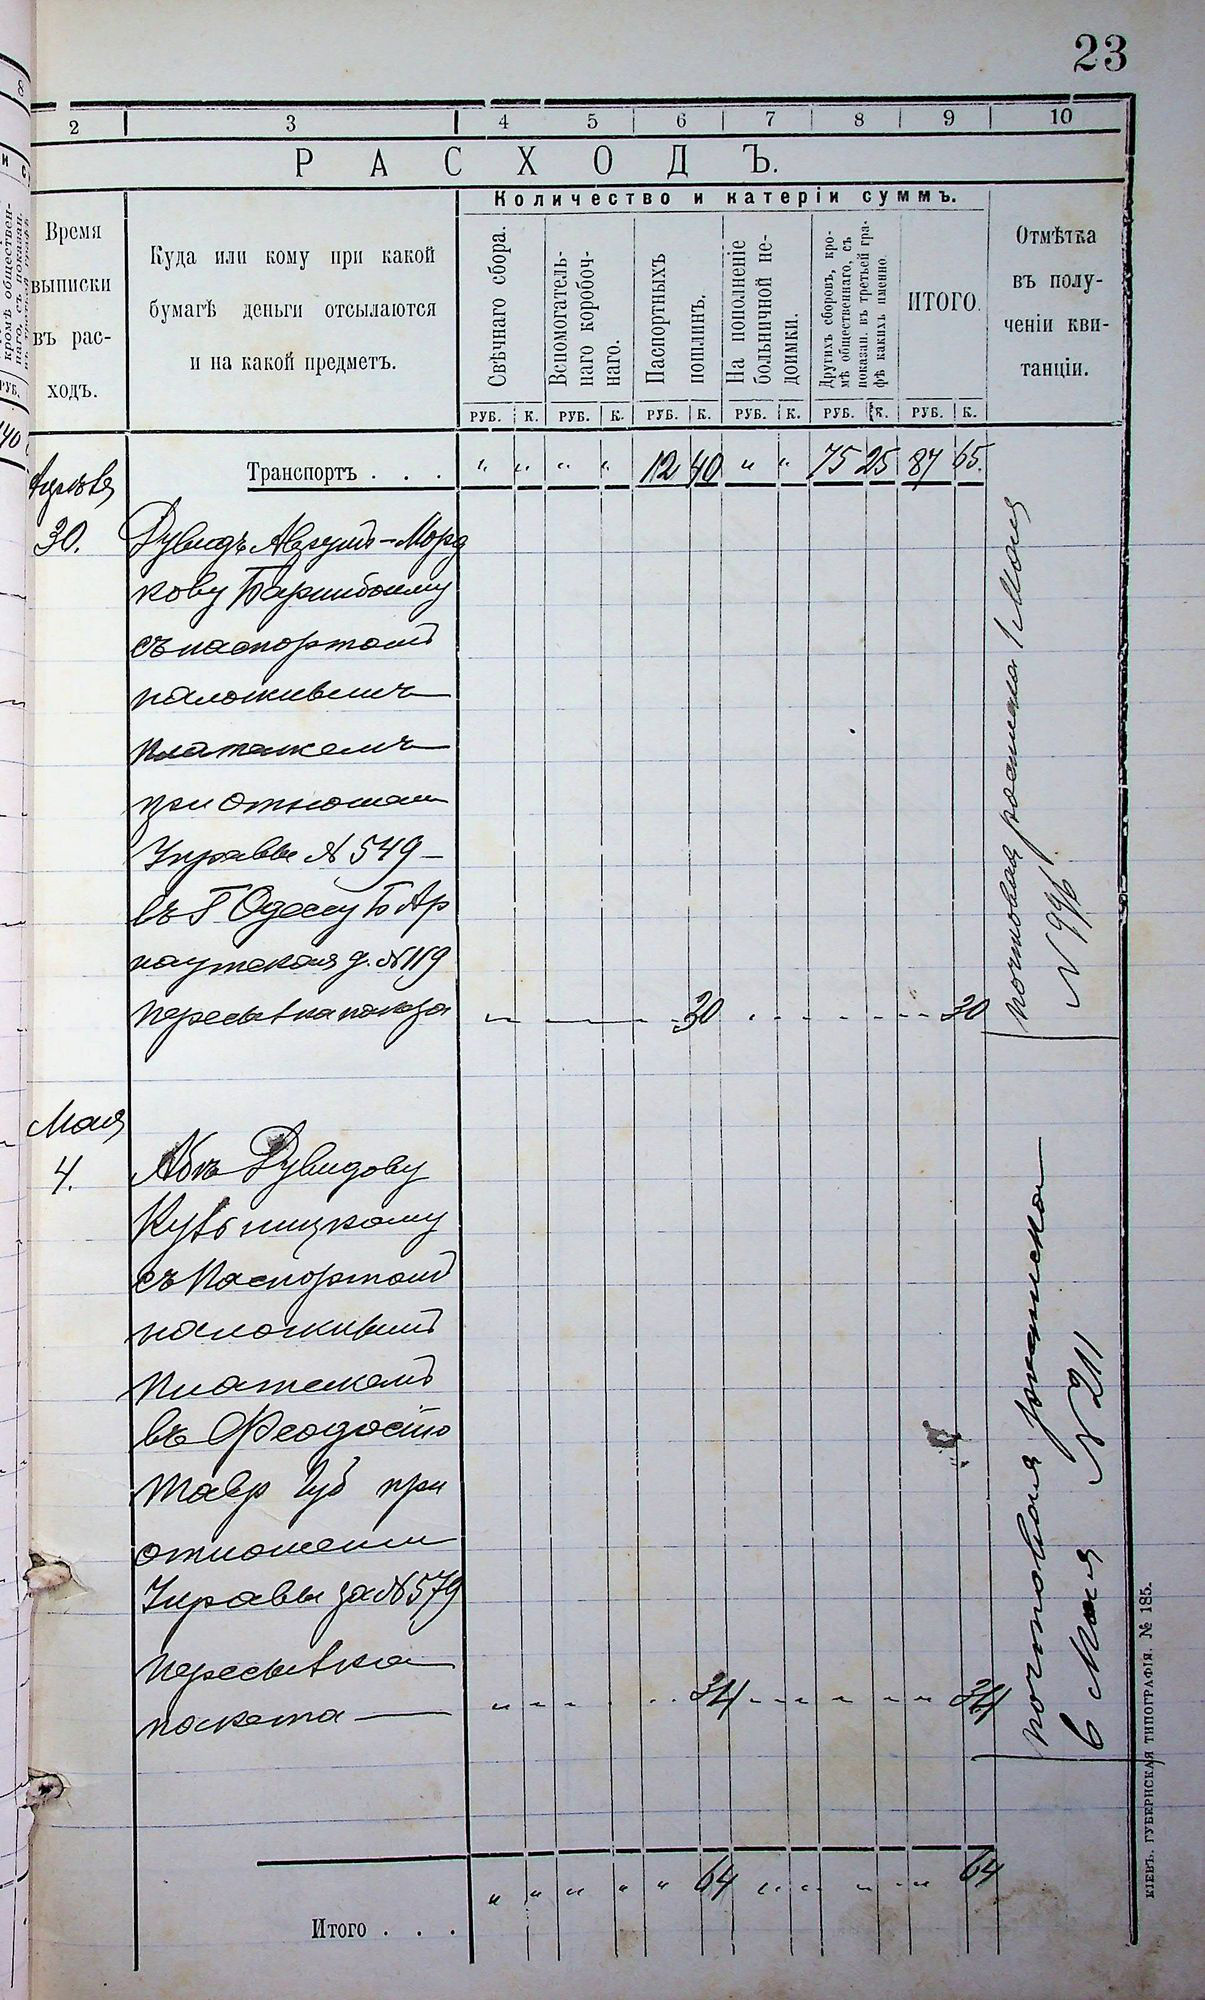 23
2 3 4 5 6 7 8 9 10
РАСХОДЪ.
Время
выписки
въ рас-
ходъ.
Куда или кому при какой
бумагѣ деньги отсылаются
и на какой предметъ.
Количество и катерiи суммъ.
Свѣчнаго сбора.
Вспомогатель-
наго коробоч-
наго.
Паспортныхъ
пошлинъ.
На пополненіе
больничной не-
доимки.
Другихъ сборовъ, кро-
мѣ общественнаго, съ
показан. въ третьей гра-
фѣ какихъ именно.
ИТОГО.
Отмѣтка
въ полу-
ченіи кви-
танціи.
РУБ. К. РУБ. К. РУБ. К. РУБ. К. РУБ. К. РУБ. К.
Транспортъ . . . " " " " 12 40 " " 75 25 87 65.
Апрѣля
30. Дувидъ -Мορд
кову
съ паспортомъ
наложнымъ
платежемъ
при отношен
Управы № 549 -
въ Г Одессу Б Ар
наутская д. № 119
пересылка 30 30
почтовая росписка 1 Мая
N 996
Мая
4. Дувидову
съ Паспортомъ
наложнымъ
Платежемъ
въ Феодосію
Тавр Губ при
отношении
Управы за № 579
Пересылка
пакета 34 34
почтовая росписка
6 Мая N 211
Итого . . . " " " " " 64 64
КІЕВЪ. ГУБЕРНСКАЯ ТИПОГРАФІЯ. № 185.